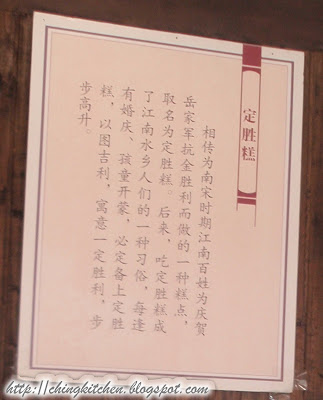 定胜糕
相传为南宋时期江南百姓为庆贺
岳家军抗金胜利而做的一种糕点，
取名为定胜糕。后来，吃定胜糕成
了江南水乡人们的一种习俗，每逢
有婚庆、孩童开蒙，必定备上定胜
糕，以图吉利，寓意一定胜利，步
步高升。
http://chingkitchen.blogspot.com